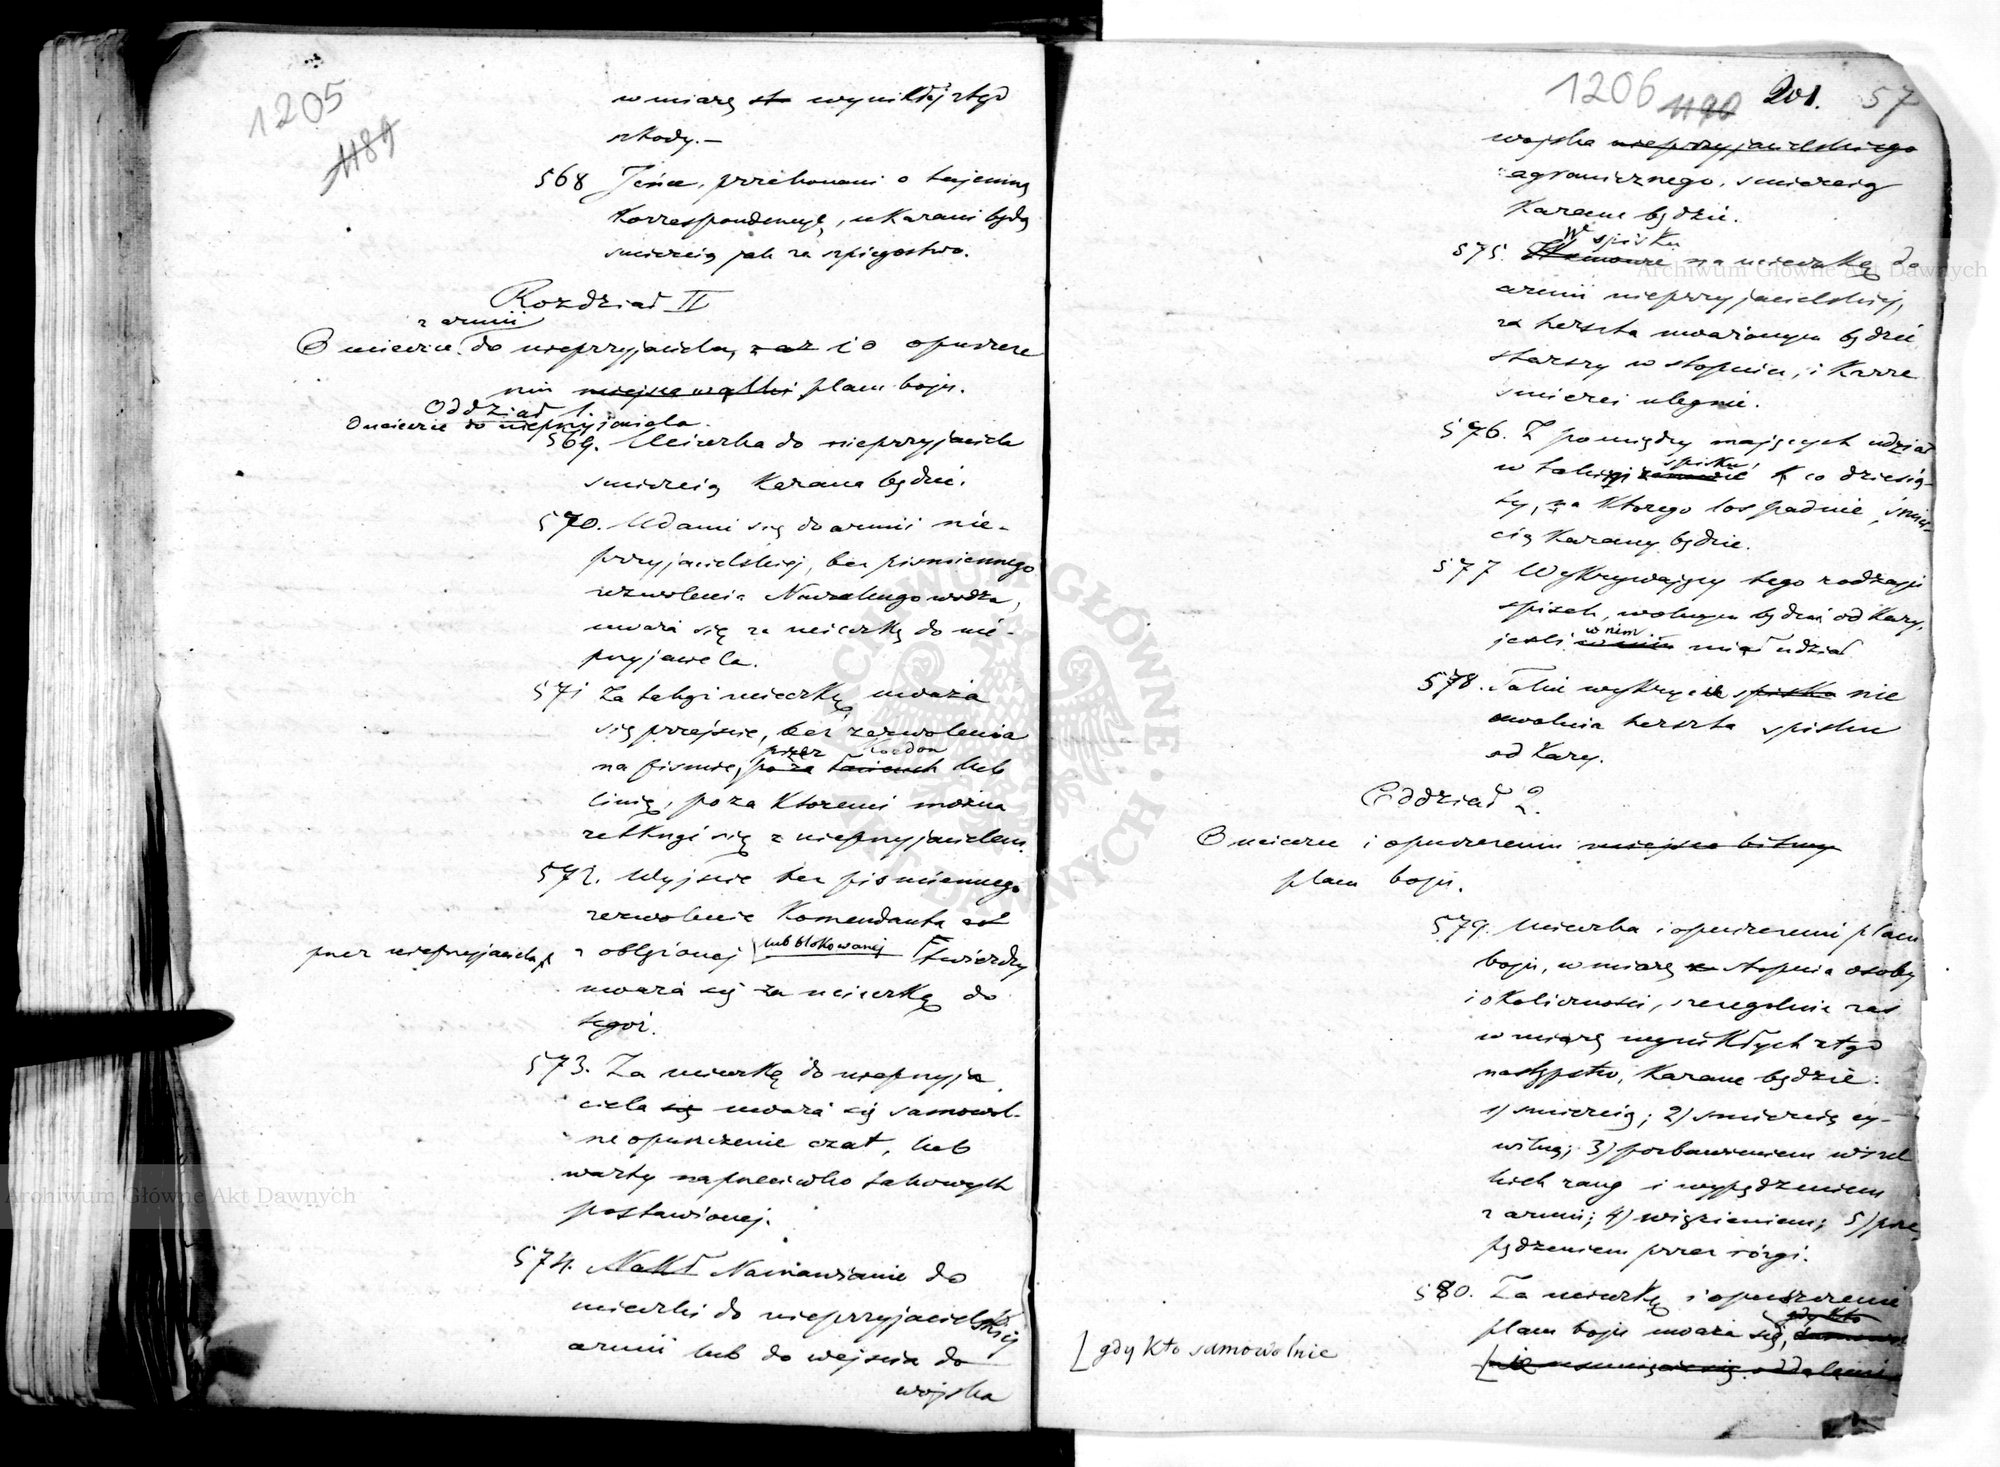 1205
1189
w miarę st wynikłéj ztąd
szkody.—
568 Jeńce, przekonani o tajemną
Korrespondencyą, ukarani będą
smiercią jak za szpiegostwo.
Rozdział II
z armii
O ucieczce do nieprzyjaciela, i o opuszcze
niu miejsca walki placu boju.
Oddział 1.
O ucieczce do nieprzyjaciela.
569. Ucieczka do nieprzyjaciela
smiercią Karana będzie.
570. Udanie się do armii nie-
przyjacielskiej, bez pismiennego
zezwolenia Naczelnego wodza,
uważa się za ucieczkę do nie-
przyjaciela.
571 Za takąż ucieczkę uważa
się przejście, bez zezwolenia
przez Kordon
na pismie, po za łańcuch lub
linię, poza Któremi można
zetknąć się z nieprzyjacielem.
572. Wyjście bez pismiennego
zezwolenia Komendanta
przez nieprzyjaciela z oblężonej lub blokowanej twierdzy
uważa się za ucieczkę do
tegoż.
573. Za ucieczkę do nieprzyja
ciela się uważa się samowol-
ne opuszczenie czat, lub
warty naprzeciwko takowych
postawionej.
574. Nakł Namawianie do
ucieczki do nieprzyjacielskiej
armii lub do wejscia do
wojska
1206 1190 201. 57
wojska nieprzyjacielskiego
zagranicznego, smiercią
Karane będzie.
W spisku
575. na ucieczkę do
armii nieprzyjacielskiej,
za herszta uważanym będzie
starszy w stopniu, i Karze
smierci ulegnie.
576. Z pomiędzy mających udział
spisku
w takiej zmowie co dziesią-
ty, na Którego los padnie, śmier-
cią Karany będzie.
577 Wykrywający tego rodzaju
spisek, wolnym będzie od Kary,
w nim
jeśli miał udział
578. Takie wykrycie spisku nie
uwolnia herszta spisku
od Kary.
Oddział 2.
O ucieczce i opuszczeniu miejsca bitwy
placu boju.
579. Ucieczka i opuszczenie placu
boju, w miarę stopnia osoby
i okoliczności, szczególnie zaś
w miarę wynikłych ztąd
następstw, Karane będzie:
1) smiercią; 2) smiercią cy-
wilną; 3) pozbawieniem wszel
kich rang i wypędzeniem
z armii; 4) więzieniem; 5) prze
pędzeniem przez rózgi.
580. Za ucieczkę i opuszczenie
gdy kto
placu boju uważa się,
nie usunięcie się oddaleni
gdy kto samowolnie
Archiwum Główne Akt Dawnych
Archiwum Główne Akt Dawnych
ARCHIWUM GŁÓWNE AKT DAWNYCH